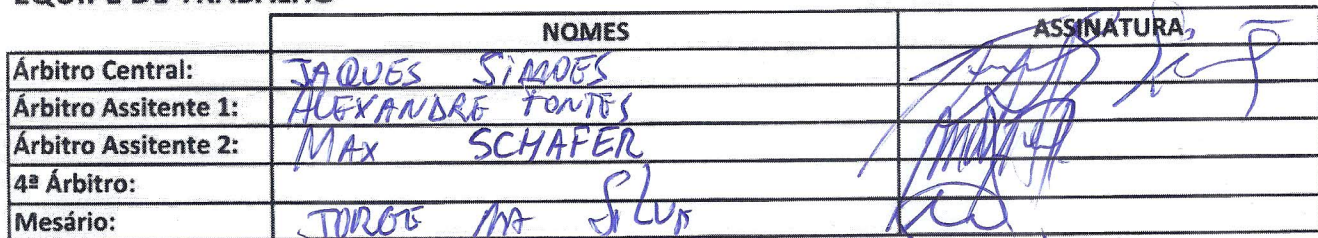 EQUIPE DE TRABALHO
NOMES ASSINATURA
Árbitro Central: JAQUES SIMOES
Árbitro Assitente 1: ALEXANDRE FONTES
Árbitro Assitente 2: MAX SCHAFER
4ª Árbitro:
Mesário: JORGE DA SILVA